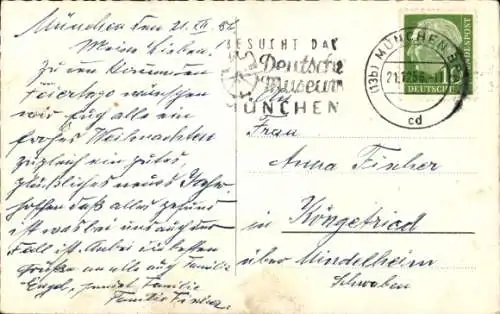 München den 21. XII. 56
Meine Lieben!
Zu den kommenden
Feiertage wünschen
wir Euch alle ein
frohes Weihnachten
zugleich ein gutes
glückliches neues Jahr.
hoffen daß alles gesund
ist was bei uns auch der
Fall ist. die besten
Grüße an alle auch Familie
Engel, Familie
Familie
BESUCHT DAS
Deutsche
Museum
MÜNCHEN
(13b) MÜNCHEN
21.12.56
cd
BUNDESPOST
10
DEUTSCHE
Frau
Anna Fischer
in Köngetried
über Mindelheim
Schwaben